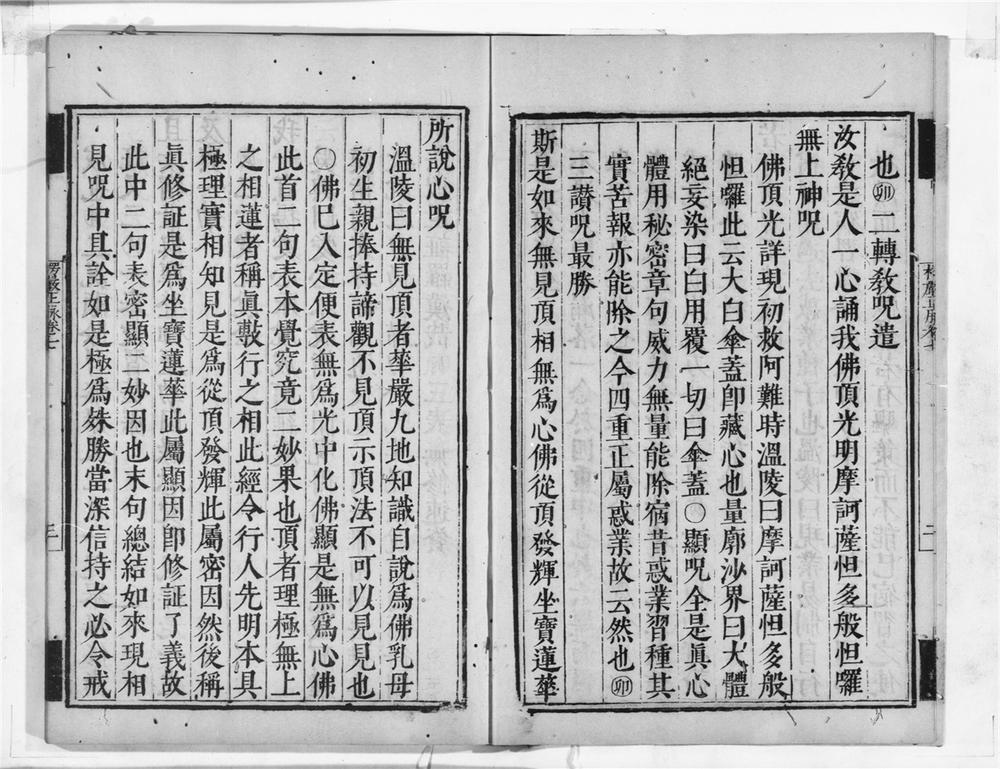 也㊞二轉敎呪遣
汝敎是人一心誦我佛頂光明摩訶薩怛多般怛囉
無上神呪
佛頂光詳現初救阿難時溫陵曰摩訶薩怛多般
怛囉此云大白傘蓋卽藏心也量廓沙界曰大體
絕妄染曰白用覆一切曰傘蓋〇顯呪全是眞心
體用秘密章句威力無量能除宿昔惑業習種其
實苦報亦能除之今四重正屬惑業故云然也卯
三讃呪最勝
斯是如來無見頂相無爲心佛從頂發輝坐寶蓮華
所說心呪
溫陵曰無見頂者華嚴九地知識自說爲佛乳母
初生親捧持諦觀不見頂示頂法不可以見見也
〇佛巳入定便表無爲光中化佛顯是無爲心佛
此首二句表本覺究竟二妙果也頂者理極無上
之相蓮者稱眞敷行之相此經令行人先明本具
極理實相知見是爲從頂發輝此屬密因然後稱
眞修証是爲坐寶蓮華此屬顯因卽修証了義故
此中二句表密顯二妙因也末句總結如來現相
見呪中具詮如是極爲殊勝當深信持之必令戒